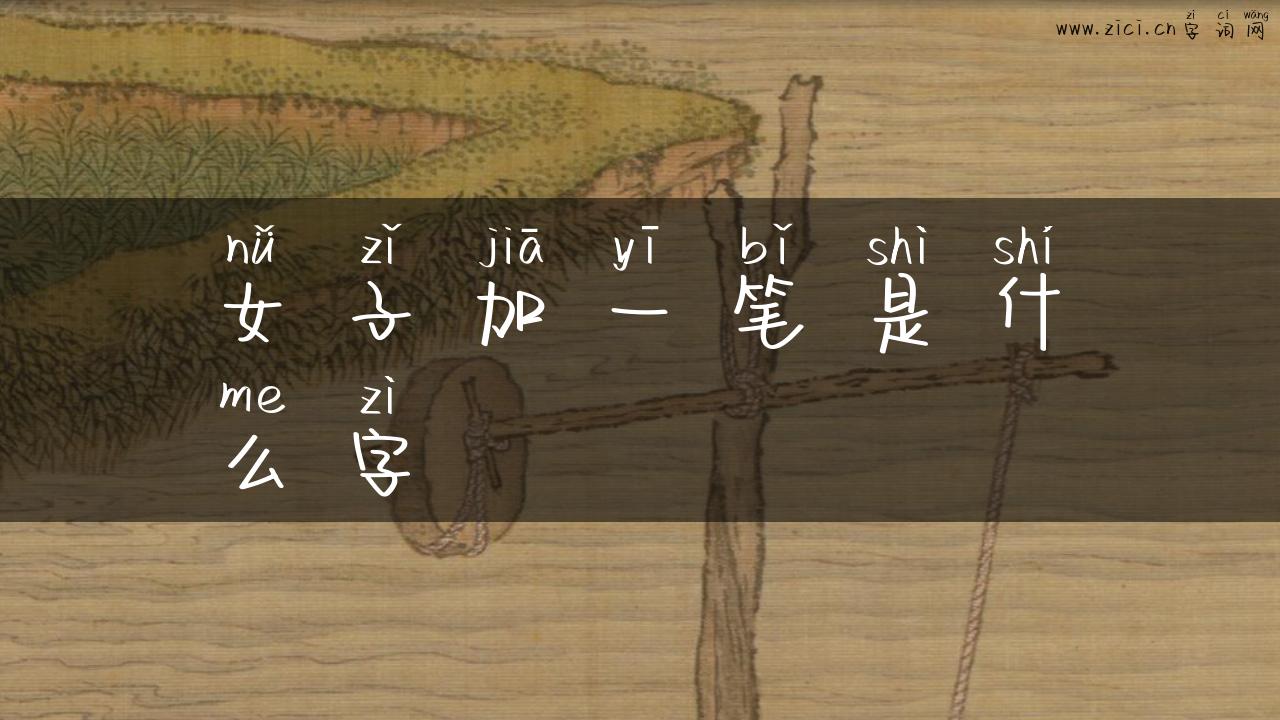 zì cí wǎng
www.zici.cn 字词网
nǚ zǐ jiā yī bǐ shì shí
女子加一笔是什
me zì
么字